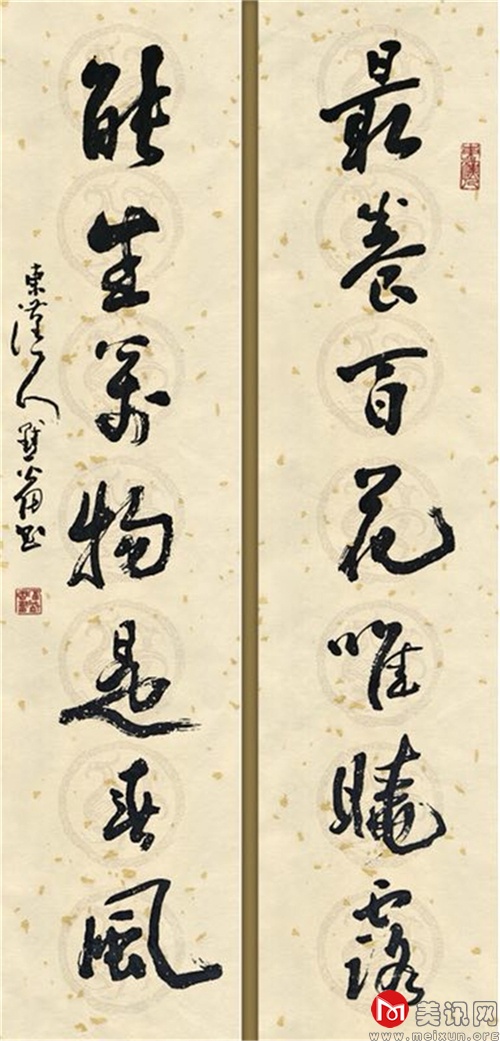 最養百花唯曉露
能生萬物是春風
東漢人
書
美讯网
www.meixun.org